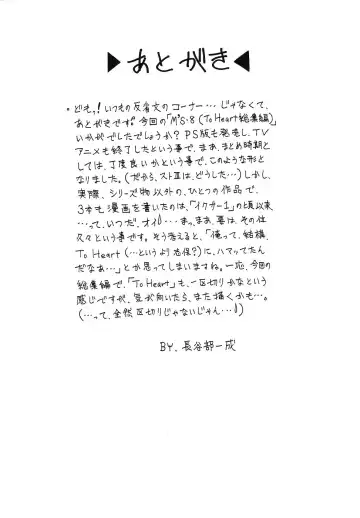 ▶あとがき◀
・ども、! いつもの反省文のコーナー… じゃなくて、
あとがきです。今回の「M'S・8 (To Heart総集編)」
いかがでしたでしょうか? PS版も発売し、TV
アニメも終了したという事で、まあ、まとめ時期と
しては、丁度良いかという事で、このような形と
なりました。(だから、ストⅢは、どうした…) しかし、
実際、シリーズ物以外の、ひとつの作品で、
3本も漫画を書いたのは、「イクサー1」の頃以来
…って、いつだ、オイ!… まっ、まあ、要は、その位
久々という事です。そう考えると、「俺って、結構、
To Heart (…というより志保?)に、ハマッてたん
だなあ…」とか思ってしまいますね。一応、今回の
総集編で、「To Heart」も、一区切りかなという
感じですが、気が向いたら、また描くかも…。
(…って、全然区切りじゃないじゃん…!)
BY. 長谷部一成